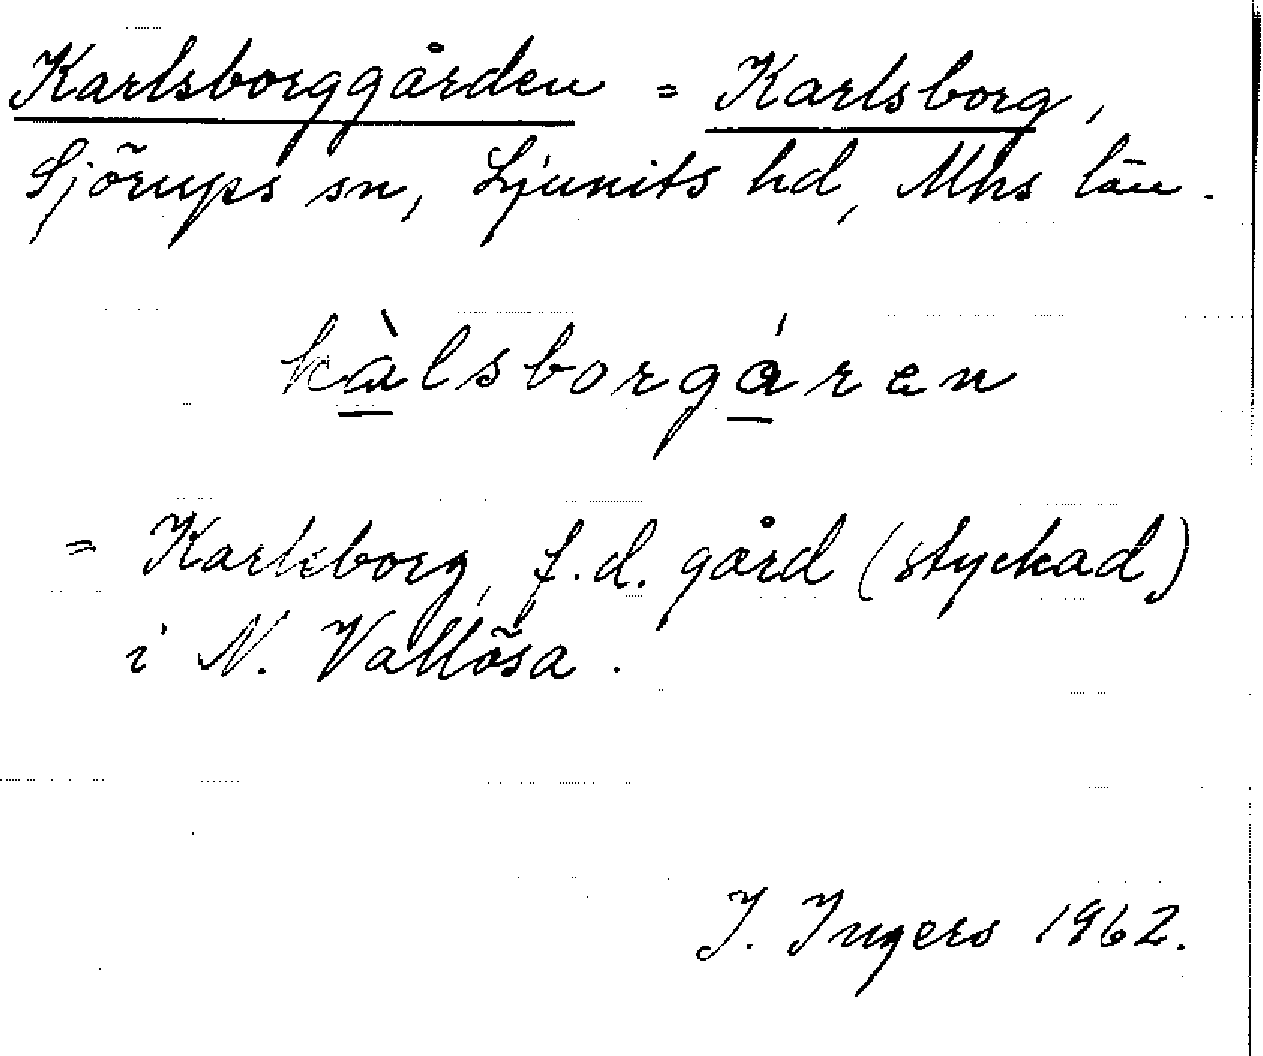 Karlsborggården = Karlsborg,
Sjörups sn, Ljunits hd, Mhs län.
kàlsborgáren
= Karlsborg, f.d. gård (styckad)
i N. Vallösa.
I. Ingers 1962.